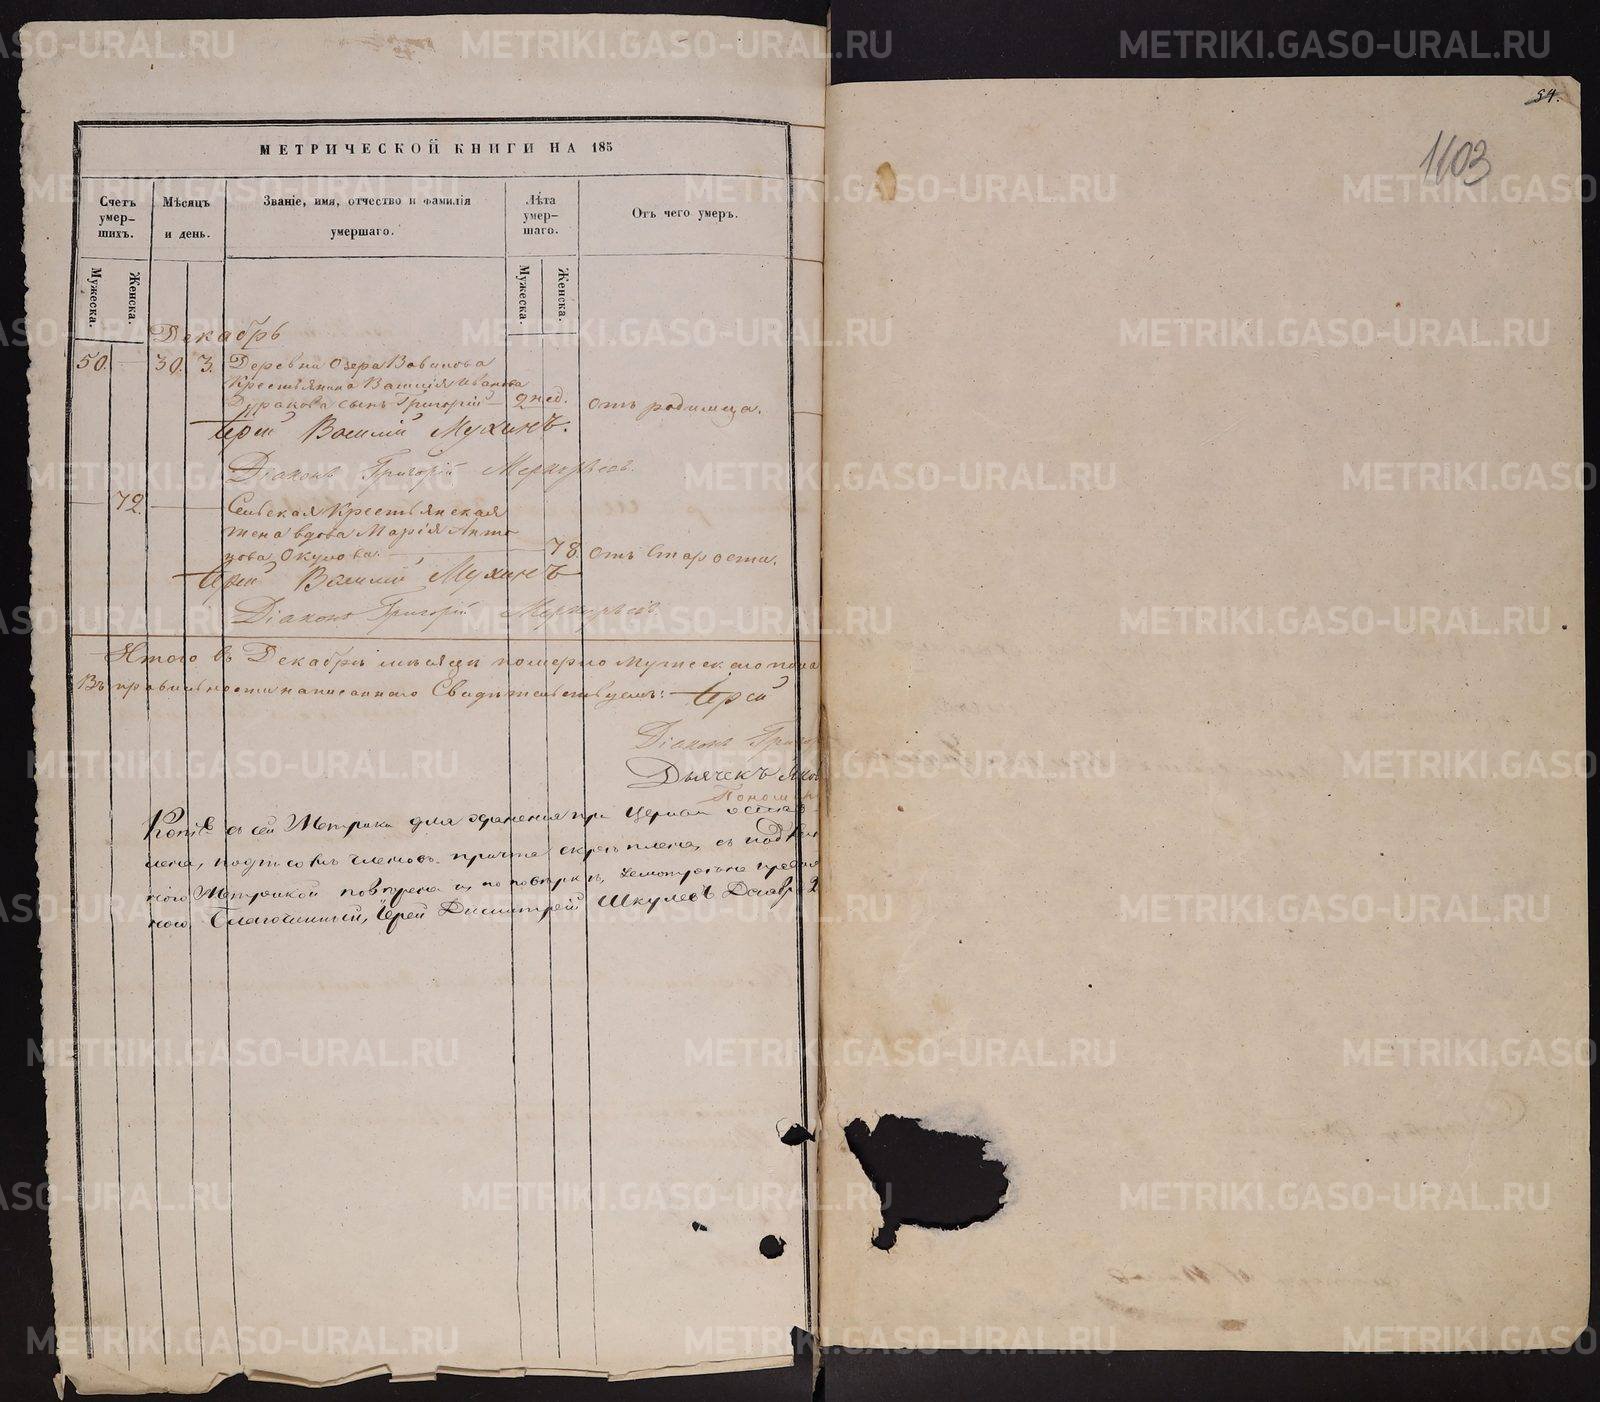 54.
1103
МЕТРИЧЕСКОЙ КНИГИ НА 185
Счетъ умершихъ.
Мѣсяцъ и день.
Званіе, имя, отчество и фамилія умершаго.
Лѣта умершаго.
Отъ чего умеръ.
Мужеска.
Женска.
Мужеска.
Женска.
Декабрь
50. 30. 3. Деревни Озера Вавилова
Крестьянина Василія Иванова
сынъ Григорій — 2 нед. отъ родимца.
Іерей Василій Мухинъ.
Діаконъ Григорій Меркурьевъ.
— 72. — Сельская Крестьянская
жена вдова Марія Анто
нова Окулова. — 78. отъ старости.
Іерей Василій Мухинъ
Діаконъ Григорій Меркурьевъ.
Итого въ Декабрѣ мѣсяцѣ померло Мужескаго пола
Въ правильности написаннаго Свидѣтельствуемъ: Іерей
Діаконъ Григор
Дьячекъ Яков
Пономарь
Копія съ сей Метрики для храненія при Церкви остав
лена, подписомъ членовъ причта скрѣплена, съ
Метрикой повѣрена и по повѣркѣ,
Благочинный, Іерей Димитрій Шкулевъ
METRIKI.GASO-URAL.RU